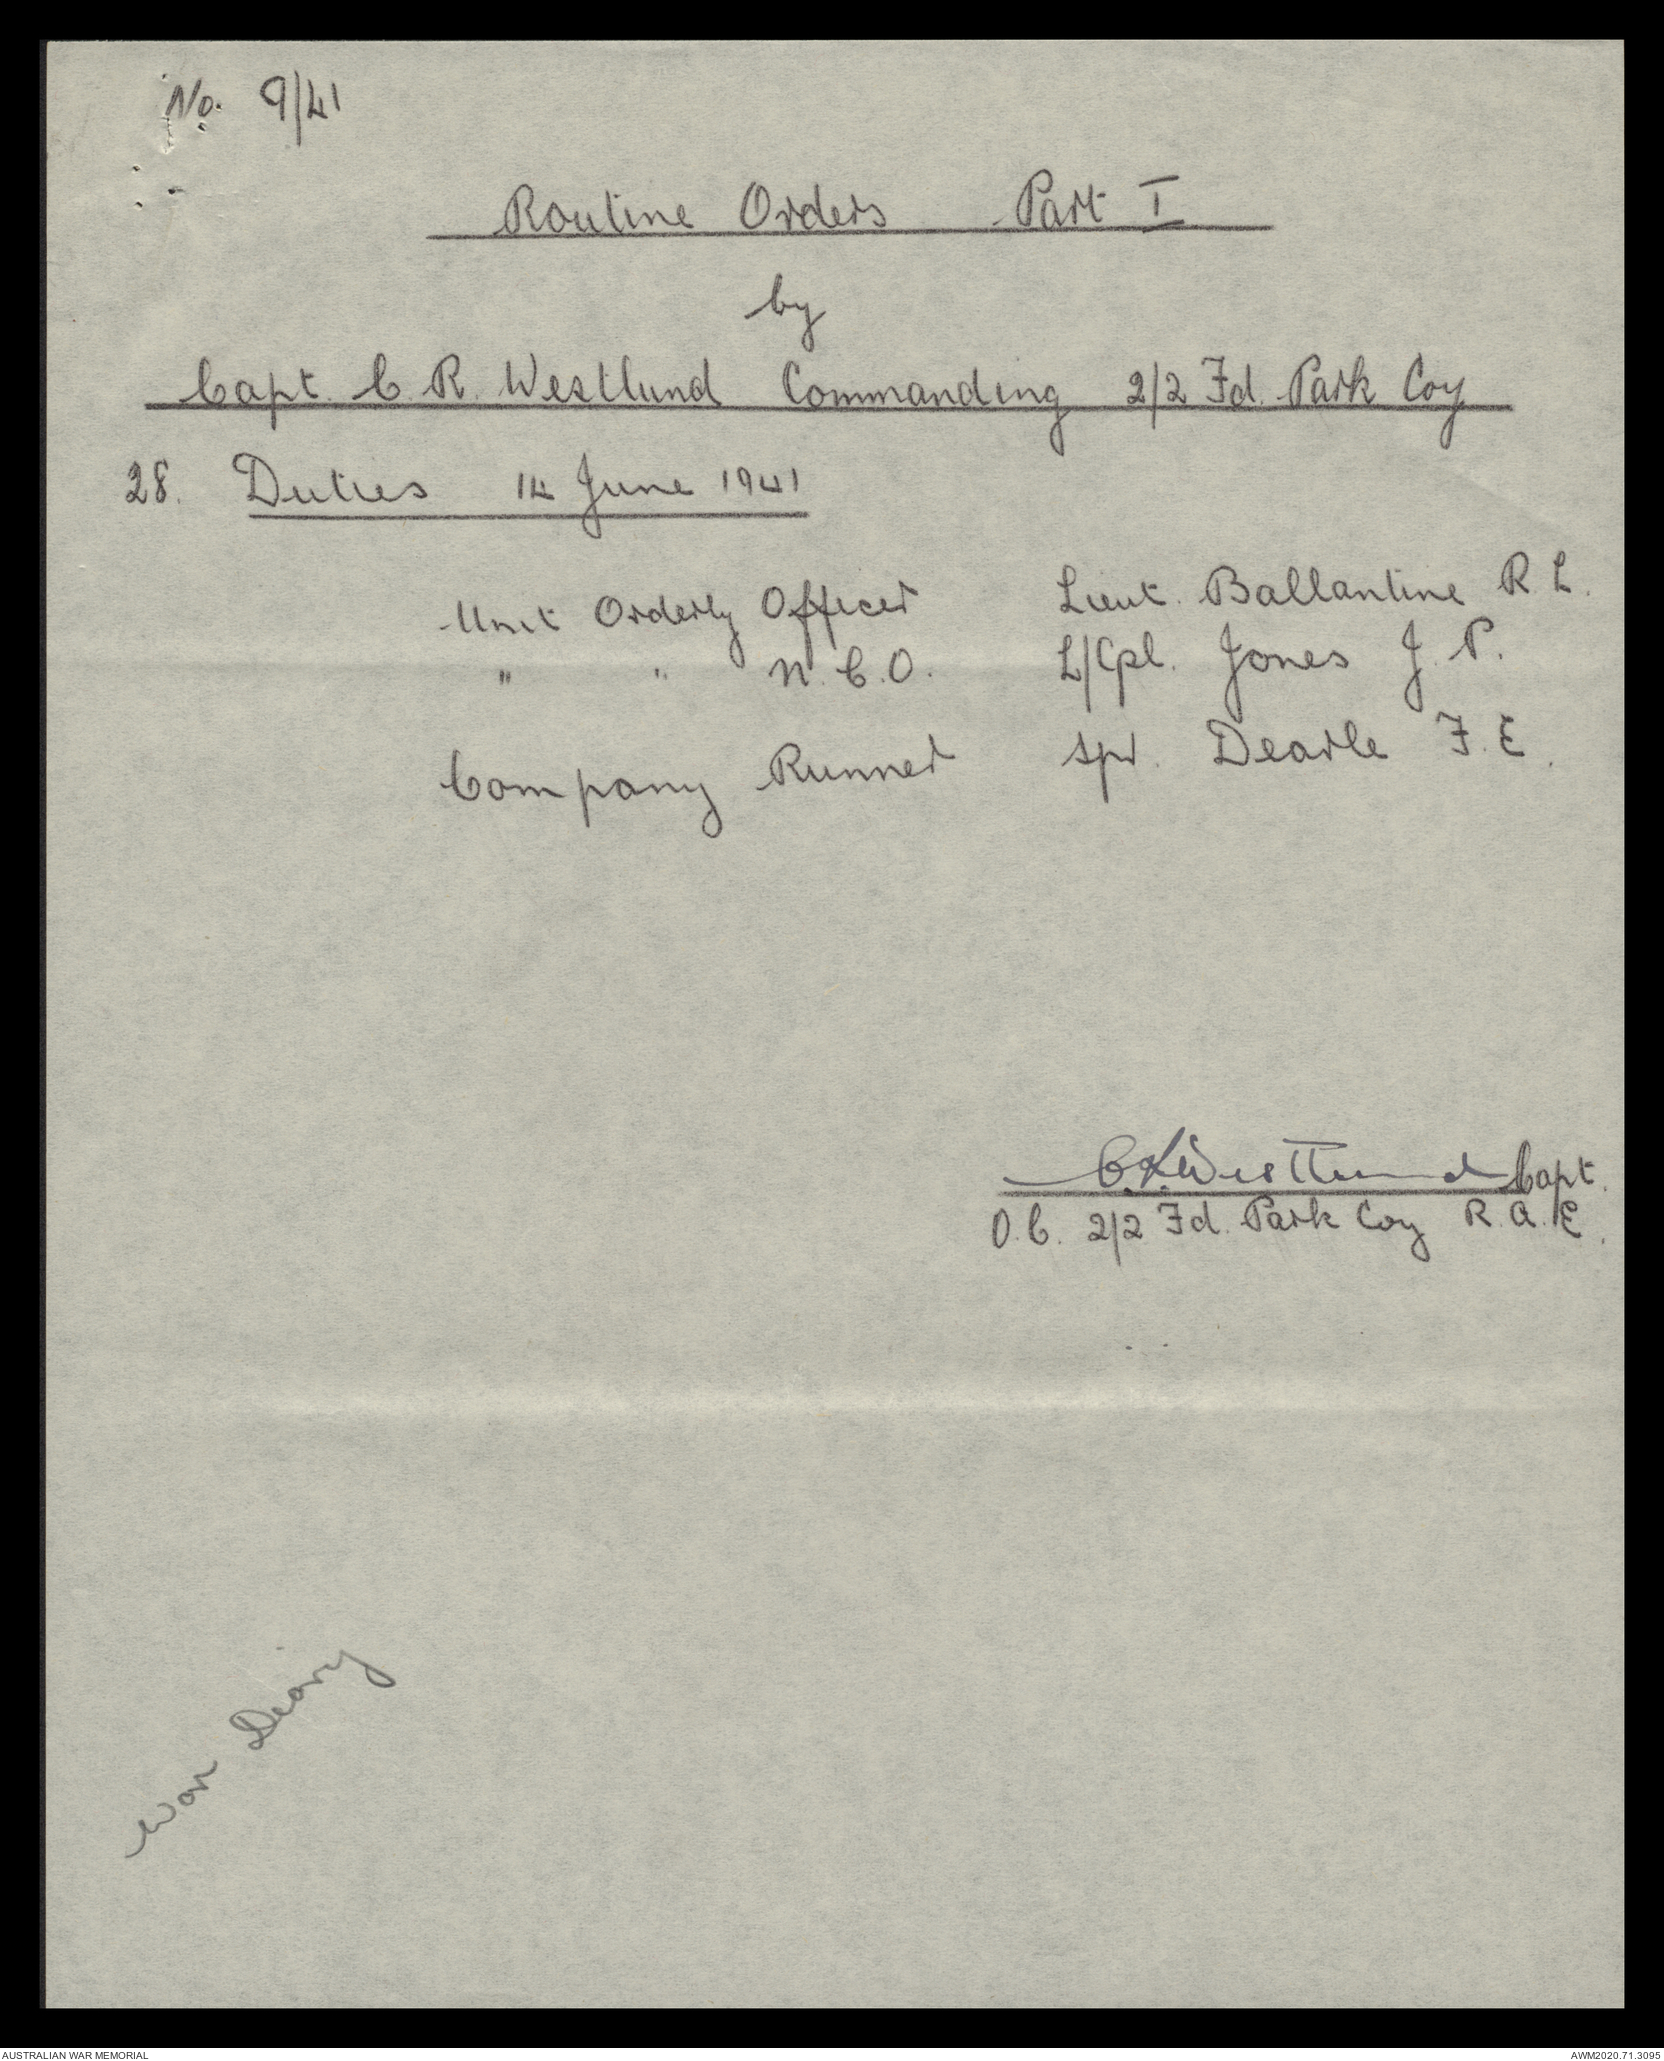 No. 9/41
Routine Orders Part I
by
Capt. C. R. Westlund Commanding 2/2 Fd. Park Coy
28. Duties 14 June 1941
Unit Orderly Officer Lieut. Ballantine R L.
" " N.C.O. L/Cpl. Jones J. P.
Company Runner Spr. Dearle F. E.
C.R. Westlund Capt.
O.C. 2/2 Fd. Park Coy R.A.E.
War Diary
AUSTRALIAN WAR MEMORIAL AWM2020.71.3095